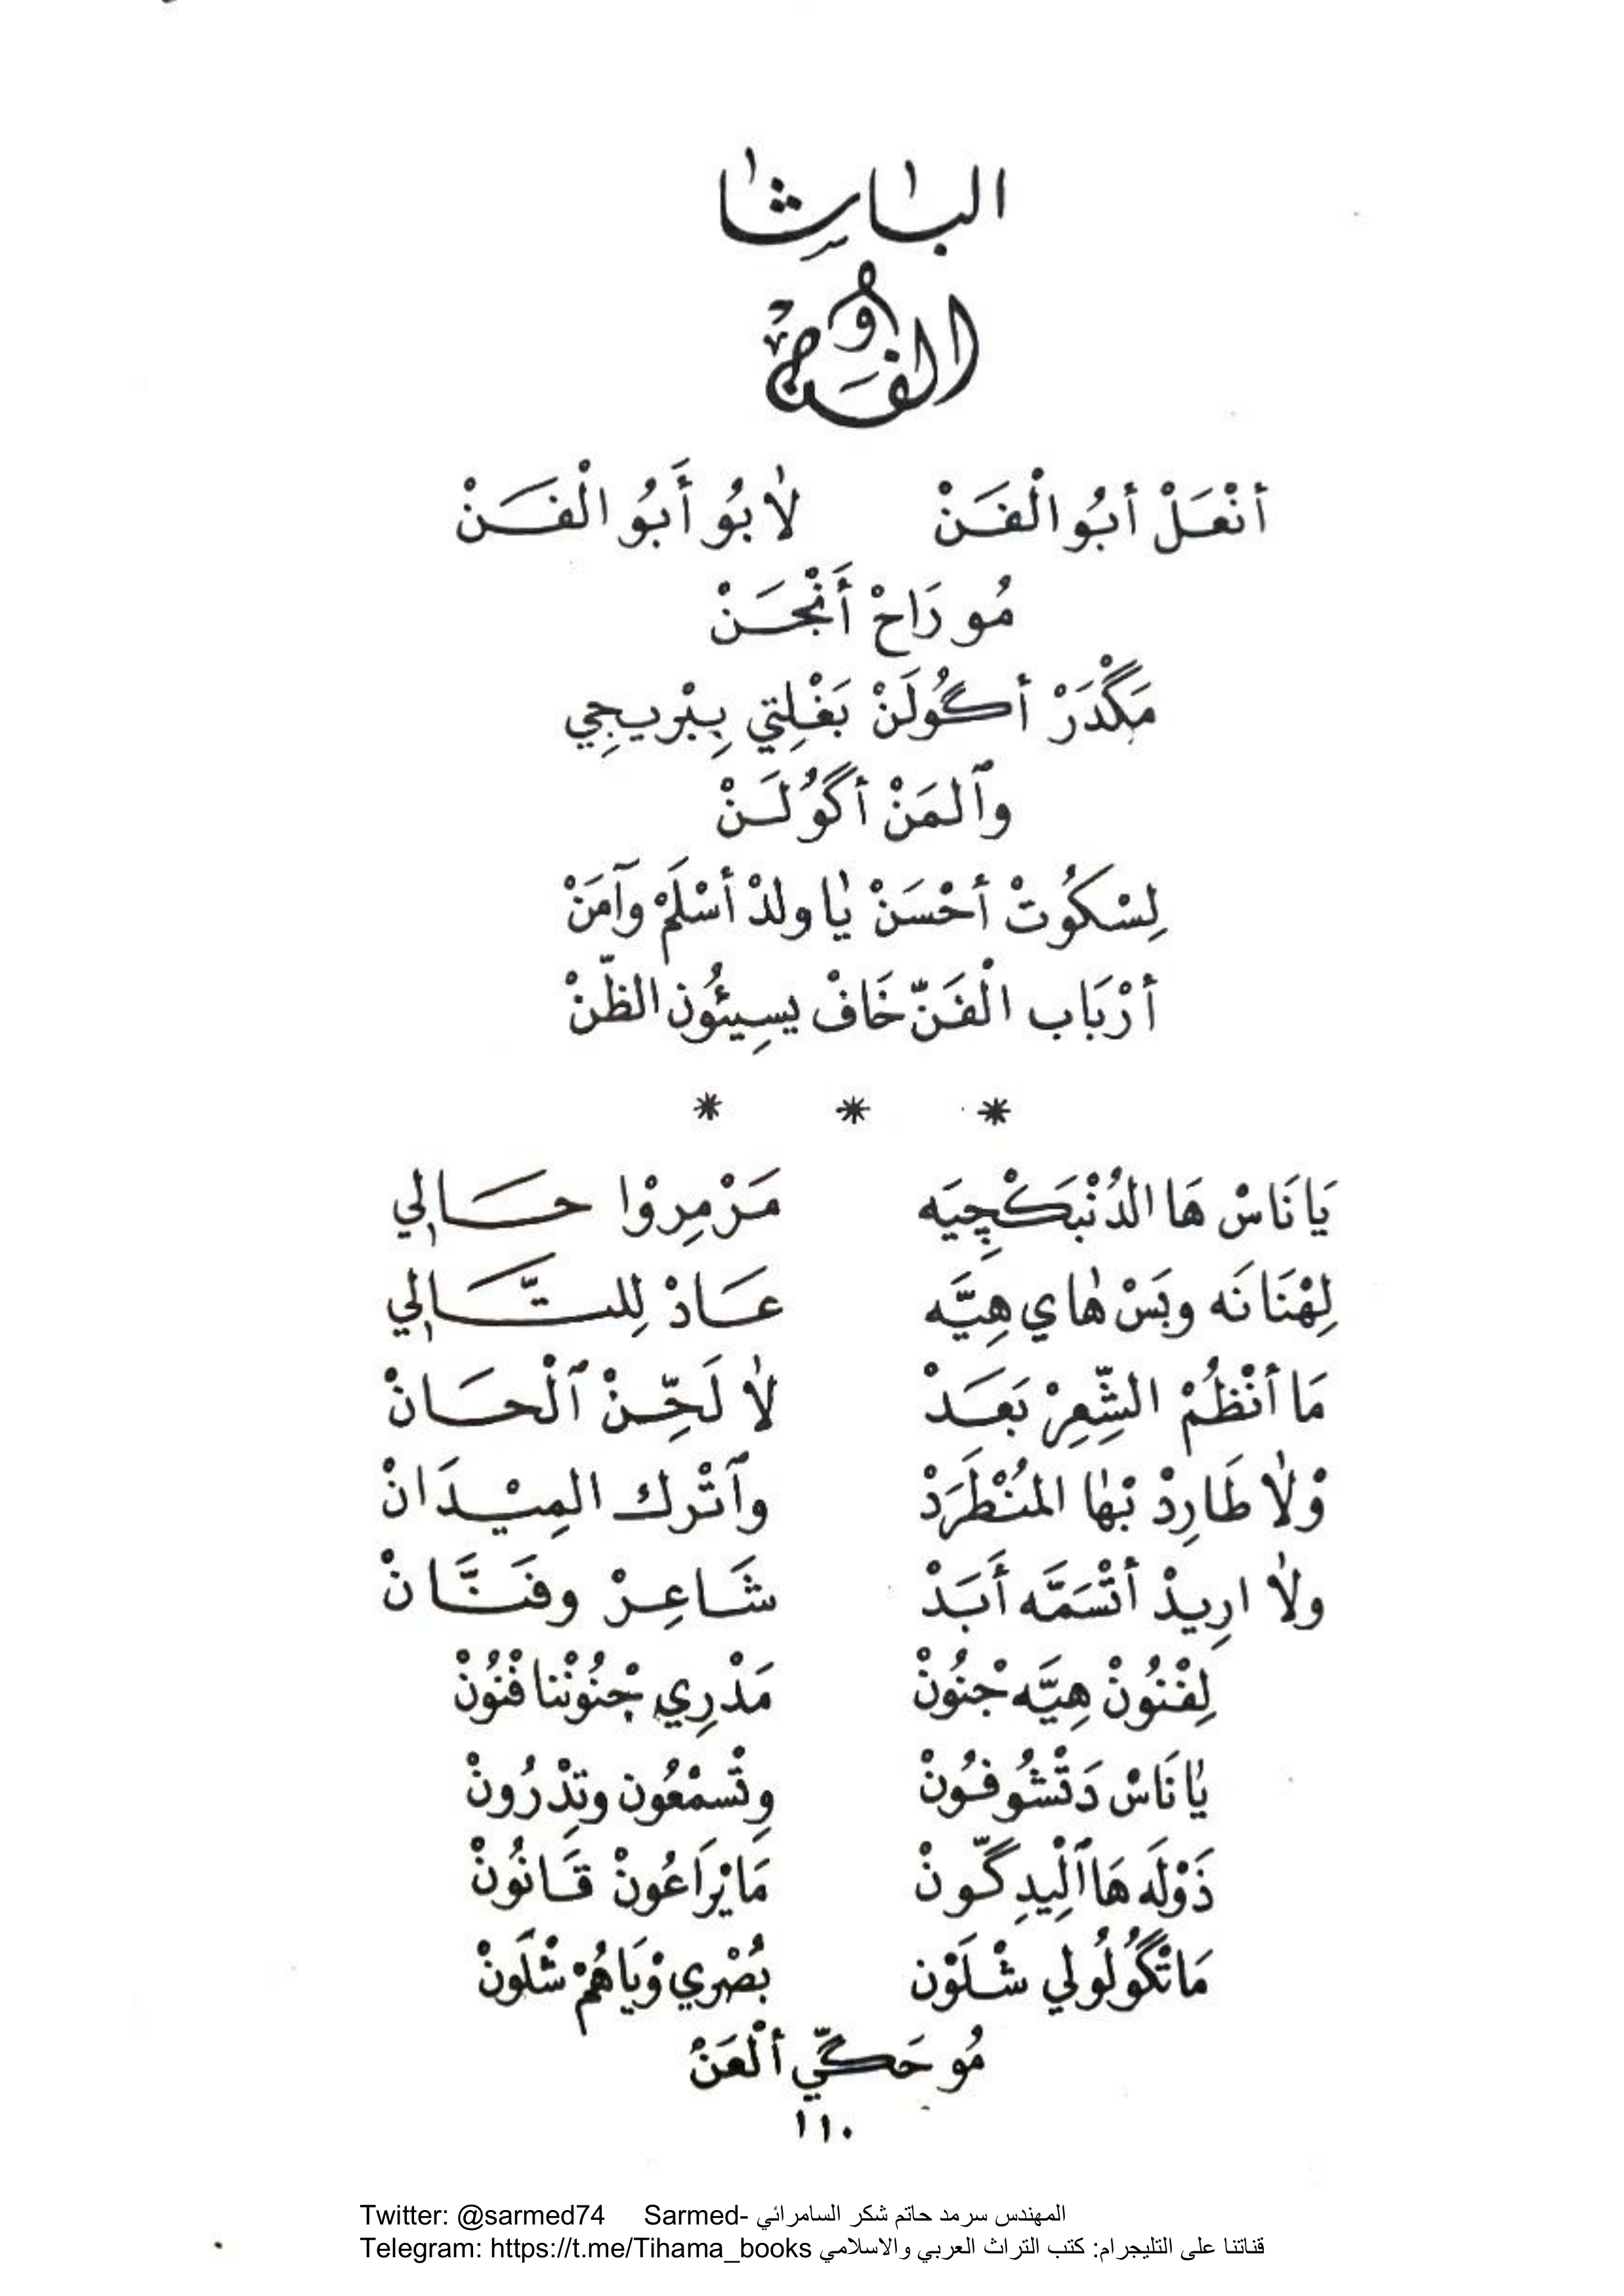 الباشا
والفن
أنْعَلْ أبُو الْفَنْ لابُو أَبُو الْفَنْ
مُو رَاحْ أَنْجَنْ
مَگْدَرْ أگُولَنْ بَغْلِتي بِبْريجِي
وآلمَنْ أگُولَنْ
لِسْكُوتْ أحْسَنْ يَا ولدْ أسْلَمْ وآمَنْ
أرْبَاب الْفَنّ خَافْ يسِيئُون الظّنْ
* * *
يَا نَاسْ هَا الدُنْبَكْچِيَه مَرْمِرِوْا حَالِي
لِهْنَا نَه وبَسْ هَاي هِيَّه عَادْ لِلتَّالِي
مَا أنْظُمْ الشِّعِرْ بَعَدْ لا لَحِّنْ آلْحَانْ
وْلا طَارِدْ بْها المُنْطَرَدْ وآتْرك المِيْدَانْ
ولا ارِيدْ أتْسَمَّه أَبَدْ شَاعِرْ وفَنَّانْ
لِفْنُونْ هِيَّه جْنُونْ مَدْرِي جْنُونْنا فْنُونْ
يَا نَاسْ دَتْشُوفُونْ وِتْسمْعُون وتِدْرُونْ
ذَوْلَه هَا آلْيِدِگّونْ مَا يْرَاعُونْ قَانُونْ
مَا تْگُولُولي شْلَوْن بُصْري وْيَاهُمْ شْلَونْ
مُو حَگِّي ألْعَنْ
١١٠
Twitter: @sarmed74 Sarmed- المهندس سرمد حاتم شكر السامرائي
Telegram: https://t.me/Tihama_books قناتنا على التليجرام: كتب التراث العربي والاسلامي